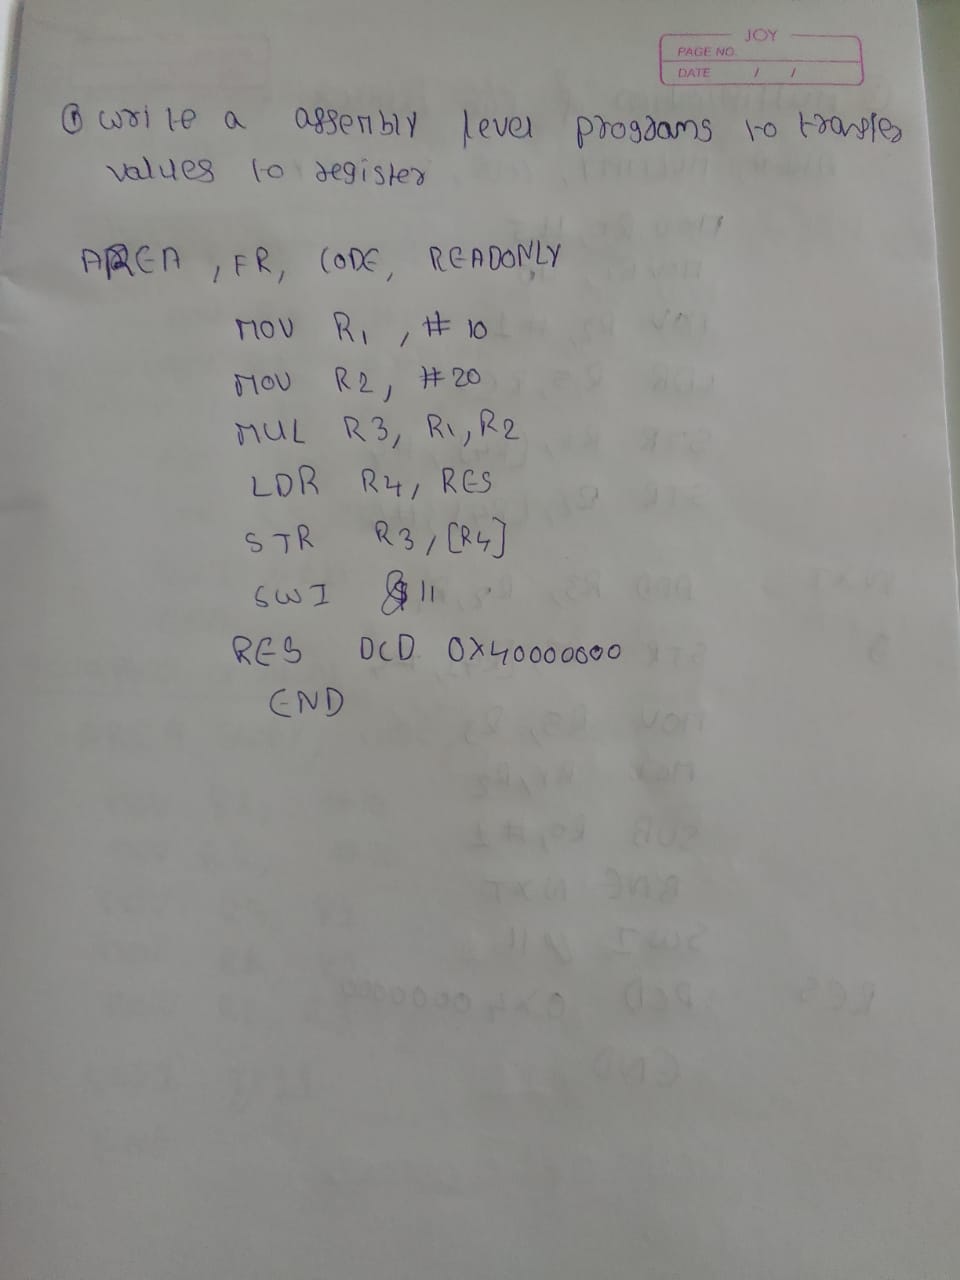 JOY
PAGE NO.
DATE / /
① write a assembly level programs to transfer
values to register
AREA , FR, CODE, READONLY
MOV R1 , # 10
MOV R2, #20
MUL R3, R1, R2
LDR R4, RES
STR R3, [R4]
SWI &11
RES DCD 0X40000000
END